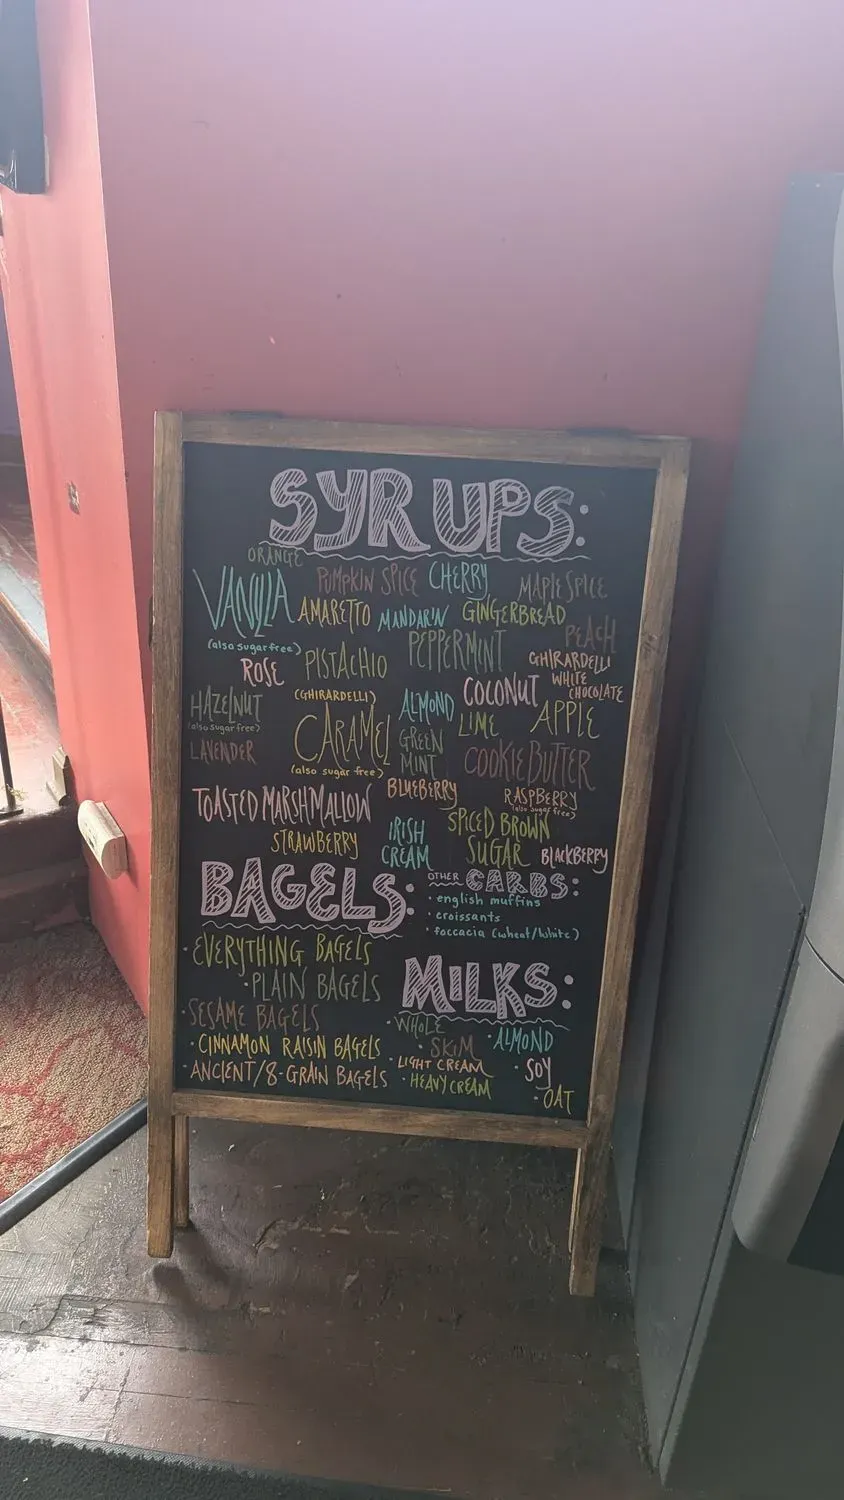 SYRUPS:
ORANGE
VANILLA
PUMPKIN SPICE
CHERRY
MAPLE SPICE
(also sugar free)
AMARETTO
MANDARIN
GINGERBREAD
PEACH
ROSE
PISTACHIO
PEPPERMINT
GHIRARDELLI
WHITE
CHOCOLATE
HAZELNUT
(also sugar free)
(GHIRARDELLI)
CARAMEL
(also sugar free)
ALMOND
COCONUT
LIME
APPLE
LAVENDER
GREEN
MINT
COOKIE BUTTER
TOASTED MARSHMALLOW
BLUEBERRY
RASPBERRY
(also sugar free)
STRAWBERRY
IRISH
CREAM
SPICED BROWN
SUGAR
BLACKBERRY
BAGELS:
• EVERYTHING BAGELS
• PLAIN BAGELS
• SESAME BAGELS
• CINNAMON RAISIN BAGELS
• ANCIENT/8-GRAIN BAGELS
OTHER CARBS:
• english muffins
• croissants
• foccacia (wheat/white)
MILKS:
• WHOLE
• SKIM
• ALMOND
• LIGHT CREAM
• SOY
• HEAVY CREAM
• OAT